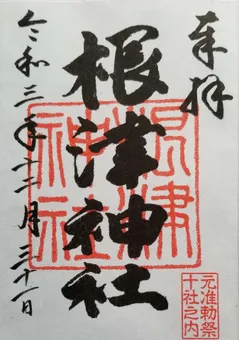 奉拝
根津神社
令和三年十二月三十一日
根津神社
元准勅祭
十社之内